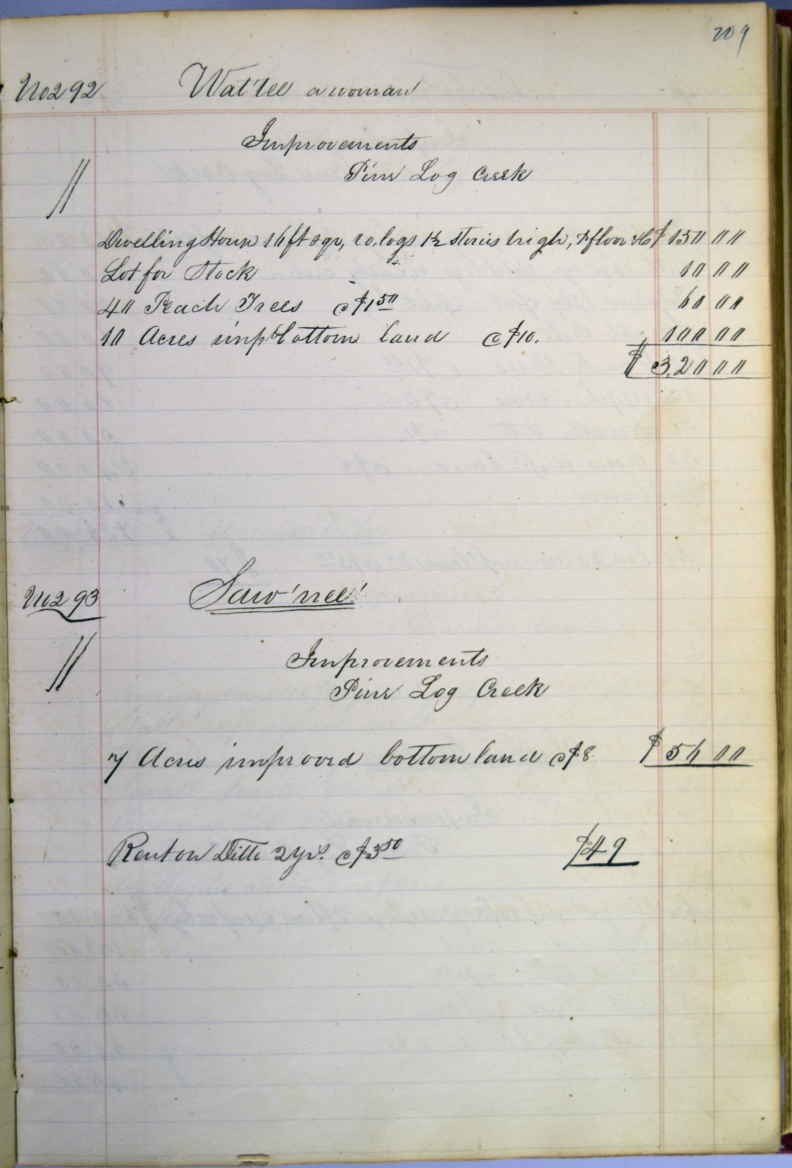 209
No 292 Wat'tee a woman
Improvements
Pine Log Creek
"
Dwelling House 16 ft sqr, ro. logs 1½ stories high, &c $ 150 00
Lot for Stock 10 00
40 Peach Trees @ $1 50 60 00
10 Acres impd bottom land @ $10. 100 00
$ 320 00
No 293 Saw'nee'
"
Improvements
Pine Log Creek
7 Acres improved bottom land @ $8. $ 56 00
Rent on Ditto 2 yrs. @ $3 50 $49